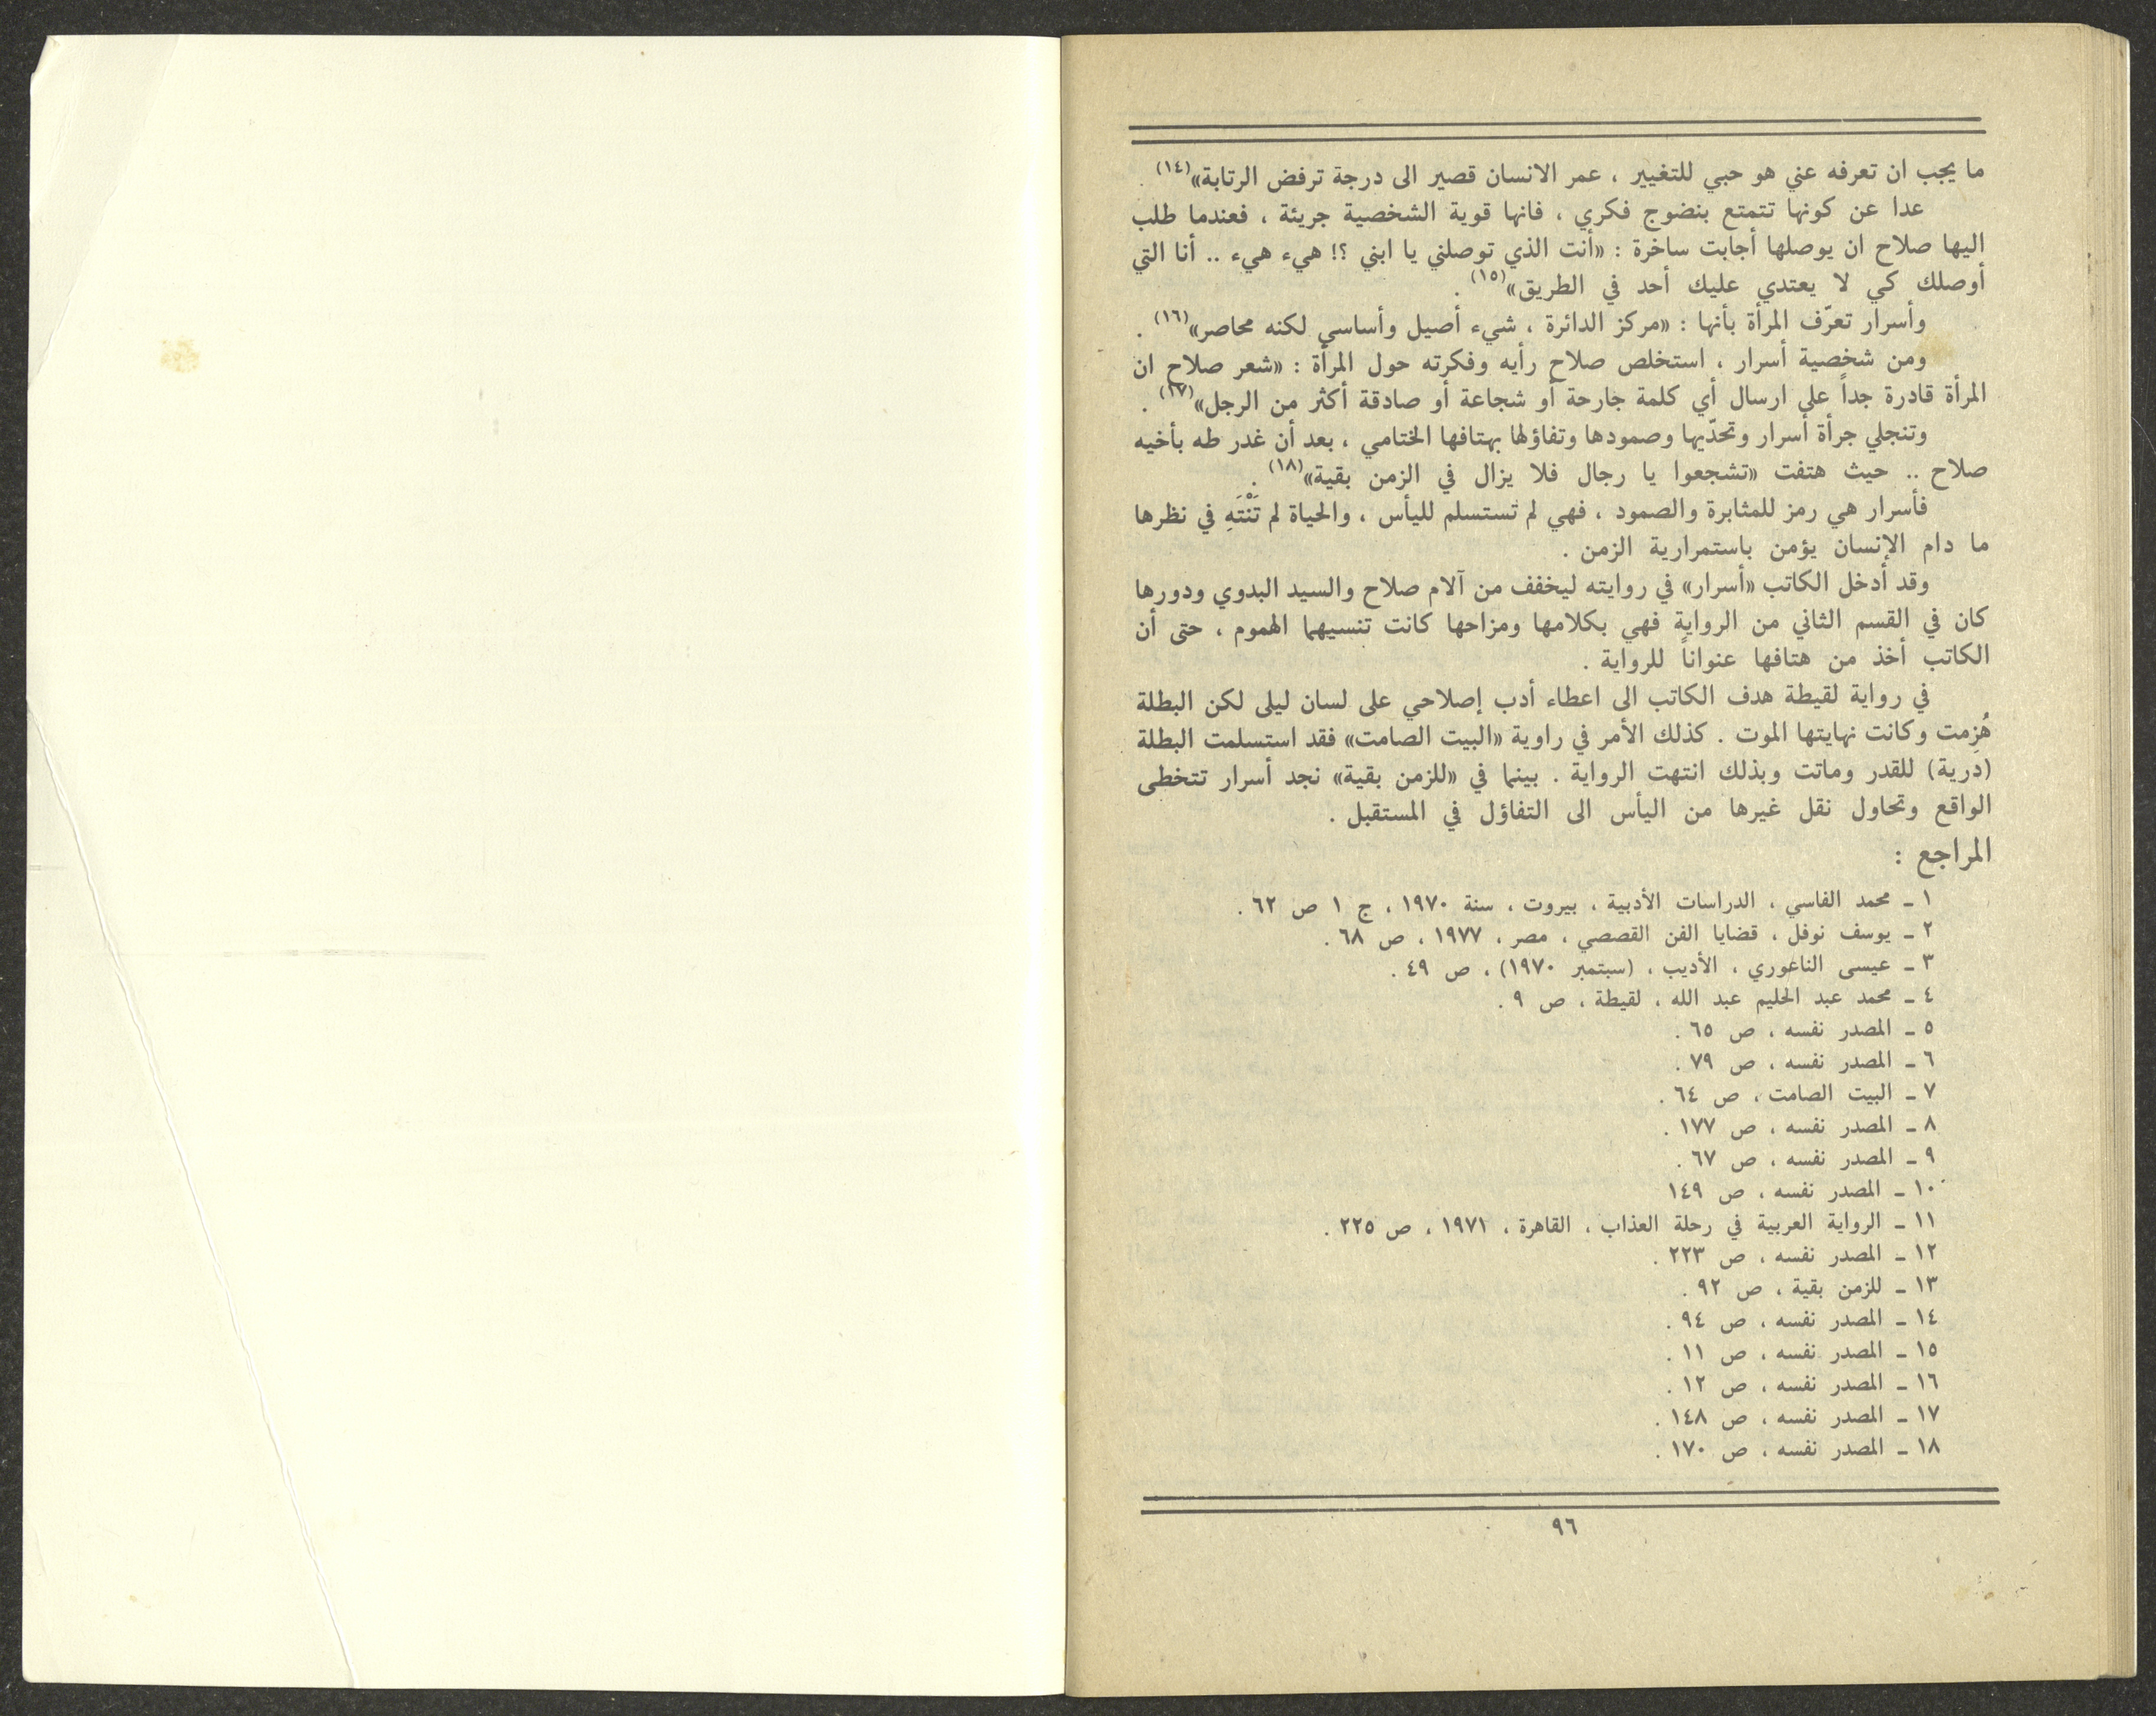 ما يجب ان تعرفه عني هو حبي للتغيير ، عمر الانسان قصير الى درجة ترفض الرتابة»(١٤) .
عدا عن كونها تتمتع بنضوج فكري ، فانها قوية الشخصية جريئة ، فعندما طلب
اليها صلاح ان يوصلها أجابت ساخرة : «أنت الذي توصلني يا ابني ؟! هيء هيء .. أنا التي
أوصلك كي لا يعتدي عليك أحد في الطريق»(١٥) .
وأسرار تعرّف المرأة بأنها : «مركز الدائرة ، شيء أصيل وأساسي لكنه محاصر»(١٦) .
ومن شخصية أسرار ، استخلص صلاح رأيه وفكرته حول المرأة : «شعر صلاح ان
المرأة قادرة جداً على ارسال أي كلمة جارحة أو شجاعة أو صادقة أكثر من الرجل»(١٧) .
وتنجلي جرأة أسرار وتحدّيها وصمودها وتفاؤلها بهتافها الختامي ، بعد أن غدر طه بأخيه
صلاح .. حيث هتفت «تشجعوا يا رجال فلا يزال في الزمن بقية»(١٨) .
فأسرار هي رمز للمثابرة والصمود ، فهي لم تستسلم لليأس ، والحياة لم تَنْتَهِ في نظرها
ما دام الإنسان يؤمن باستمرارية الزمن .
وقد أدخل الكاتب «أسرار» في روايته ليخفف من آلام صلاح والسيد البدوي ودورها
كان في القسم الثاني من الرواية فهي بكلامها ومزاحها كانت تنسيهما الهموم ، حتى أن
الكاتب أخذ من هتافها عنواناً للرواية .
في رواية لقيطة هدف الكاتب الى اعطاء أدب إصلاحي على لسان ليلى لكن البطلة
هُزِمت وكانت نهايتها الموت . كذلك الأمر في راوية «البيت الصامت» فقد استسلمت البطلة
(درية) للقدر وماتت وبذلك انتهت الرواية . بينما في «للزمن بقية» نجد أسرار تتخطى
الواقع وتحاول نقل غيرها من اليأس الى التفاؤل في المستقبل .
المراجع :
١ ـ محمد الفاسي ، الدراسات الأدبية ، بيروت ، سنة ١٩٧٠ ، ج ١ ص ٦٢ .
٢ ـ يوسف نوفل ، قضايا الفن القصصي ، مصر ، ١٩٧٧ ، ص ٦٨ .
٣ ـ عيسى الناعوري ، الأديب ، (سبتمبر ١٩٧٠) ، ص ٤٩ .
٤ ـ محمد عبد الحليم عبد الله ، لقيطة ، ص ٩ .
٥ ـ المصدر نفسه ، ص ٦٥ .
٦ ـ المصدر نفسه ، ص ٧٩ .
٧ ـ البيت الصامت ، ص ٦٤ .
٨ ـ المصدر نفسه ، ص ١٧٧ .
٩ ـ المصدر نفسه ، ص ٦٧ .
١٠ ـ المصدر نفسه ، ص ١٤٩
١١ ـ الرواية العربية في رحلة العذاب ، القاهرة ، ١٩٧١ ، ص ٢٢٥ .
١٢ ـ المصدر نفسه ، ص ٢٢٣ .
١٣ ـ للزمن بقية ، ص ٩٢ .
١٤ ـ المصدر نفسه ، ص ٩٤ .
١٥ ـ المصدر نفسه ، ص ١١ .
١٦ ـ المصدر نفسه ، ص ١٢ .
١٧ ـ المصدر نفسه ، ص ١٤٨ .
١٨ ـ المصدر نفسه ، ص ١٧٠ .
٩٦